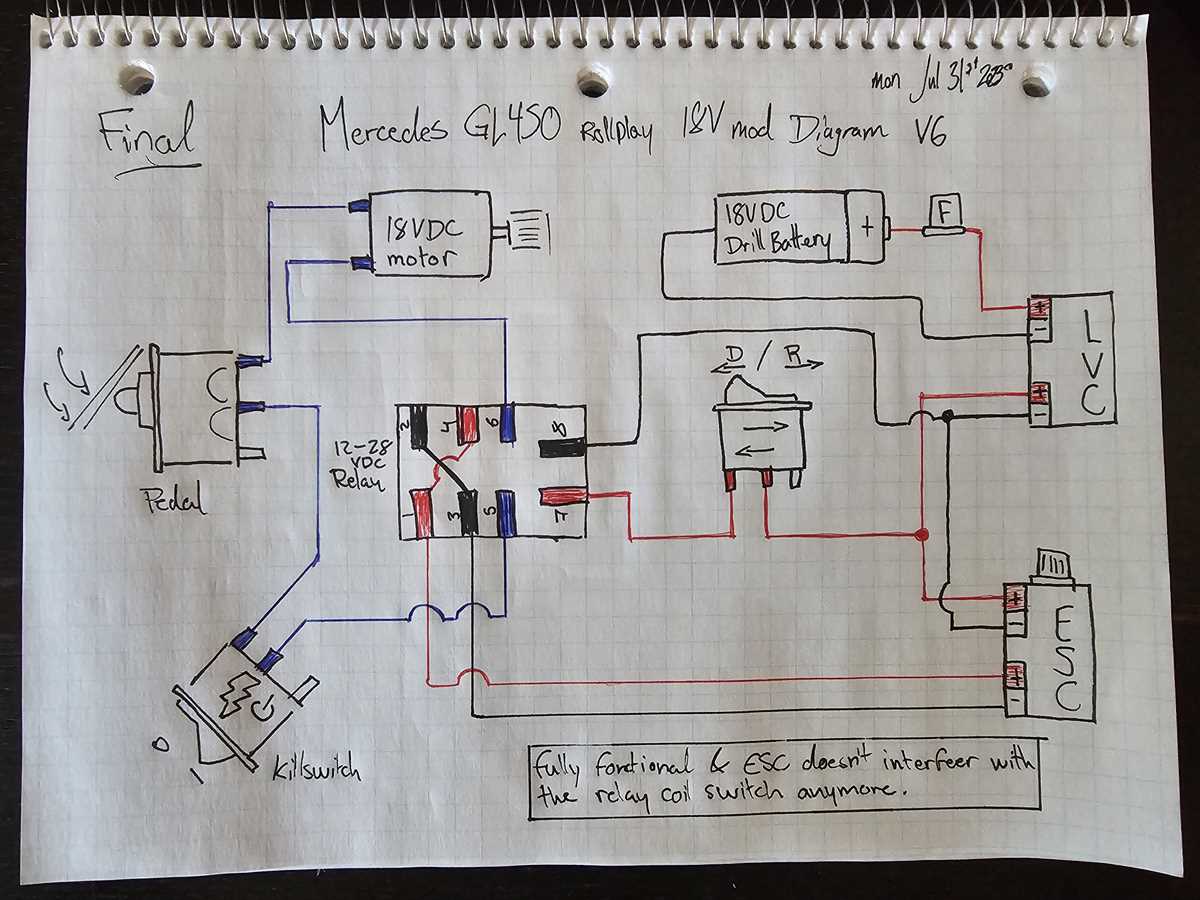 mon Jul 31st
Final
Mercedes GL450 Rollplay 18V mod Diagram V6
18VDC
motor
18VDC
Drill Battery
+
F
+
-
+
-
LVC
D / R
12-28
VDC
Relay
2
4
6
8
1
3
5
7
Pedal
+
-
+
-
ESC
0
1
Killswitch
fully fonctional & ESC doesn't interfeer with
the relay coil switch anymore.